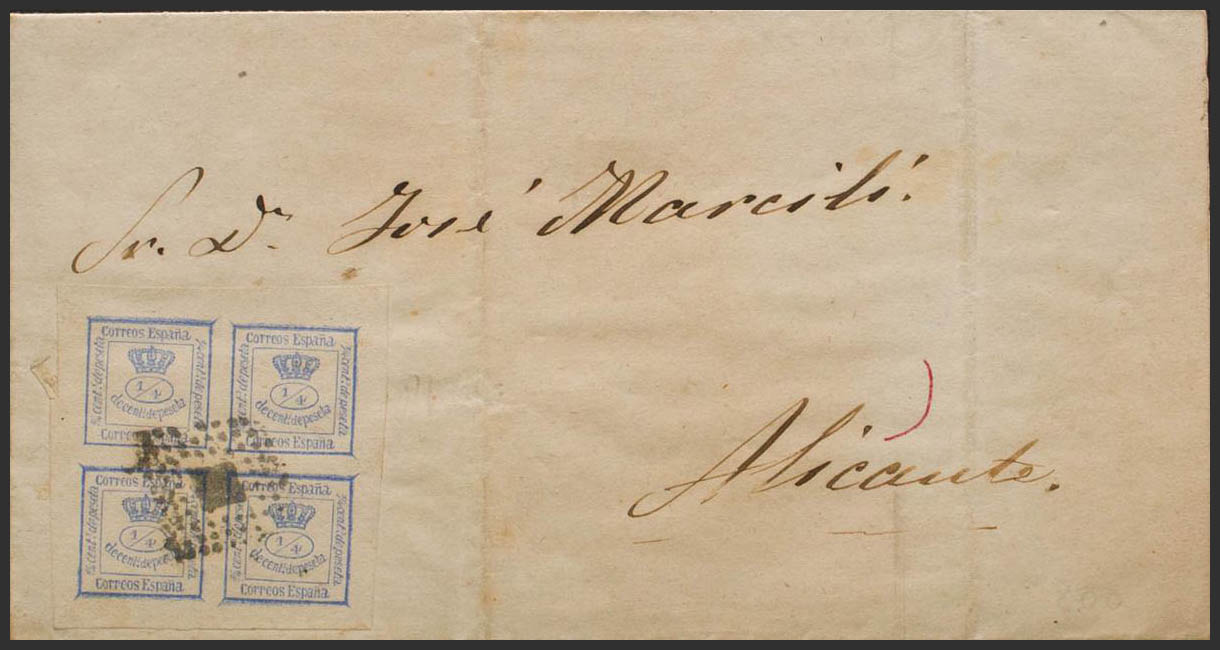 Sr. Dn. José Marcili.
Correos España
¼ cent.s de peseta
1/4
de cent.s de peseta
¼ cent.s de peseta
Correos España
Correos España
¼ cent.s de peseta
1/4
de cent.s de peseta
¼ cent.s de peseta
Correos España
Alicante.
Correos España
¼ cent.s de peseta
1/4
de cent.s de peseta
Correos España
Correos España
1/4
de cent.s de peseta
¼ cent.s de peseta
Correos España